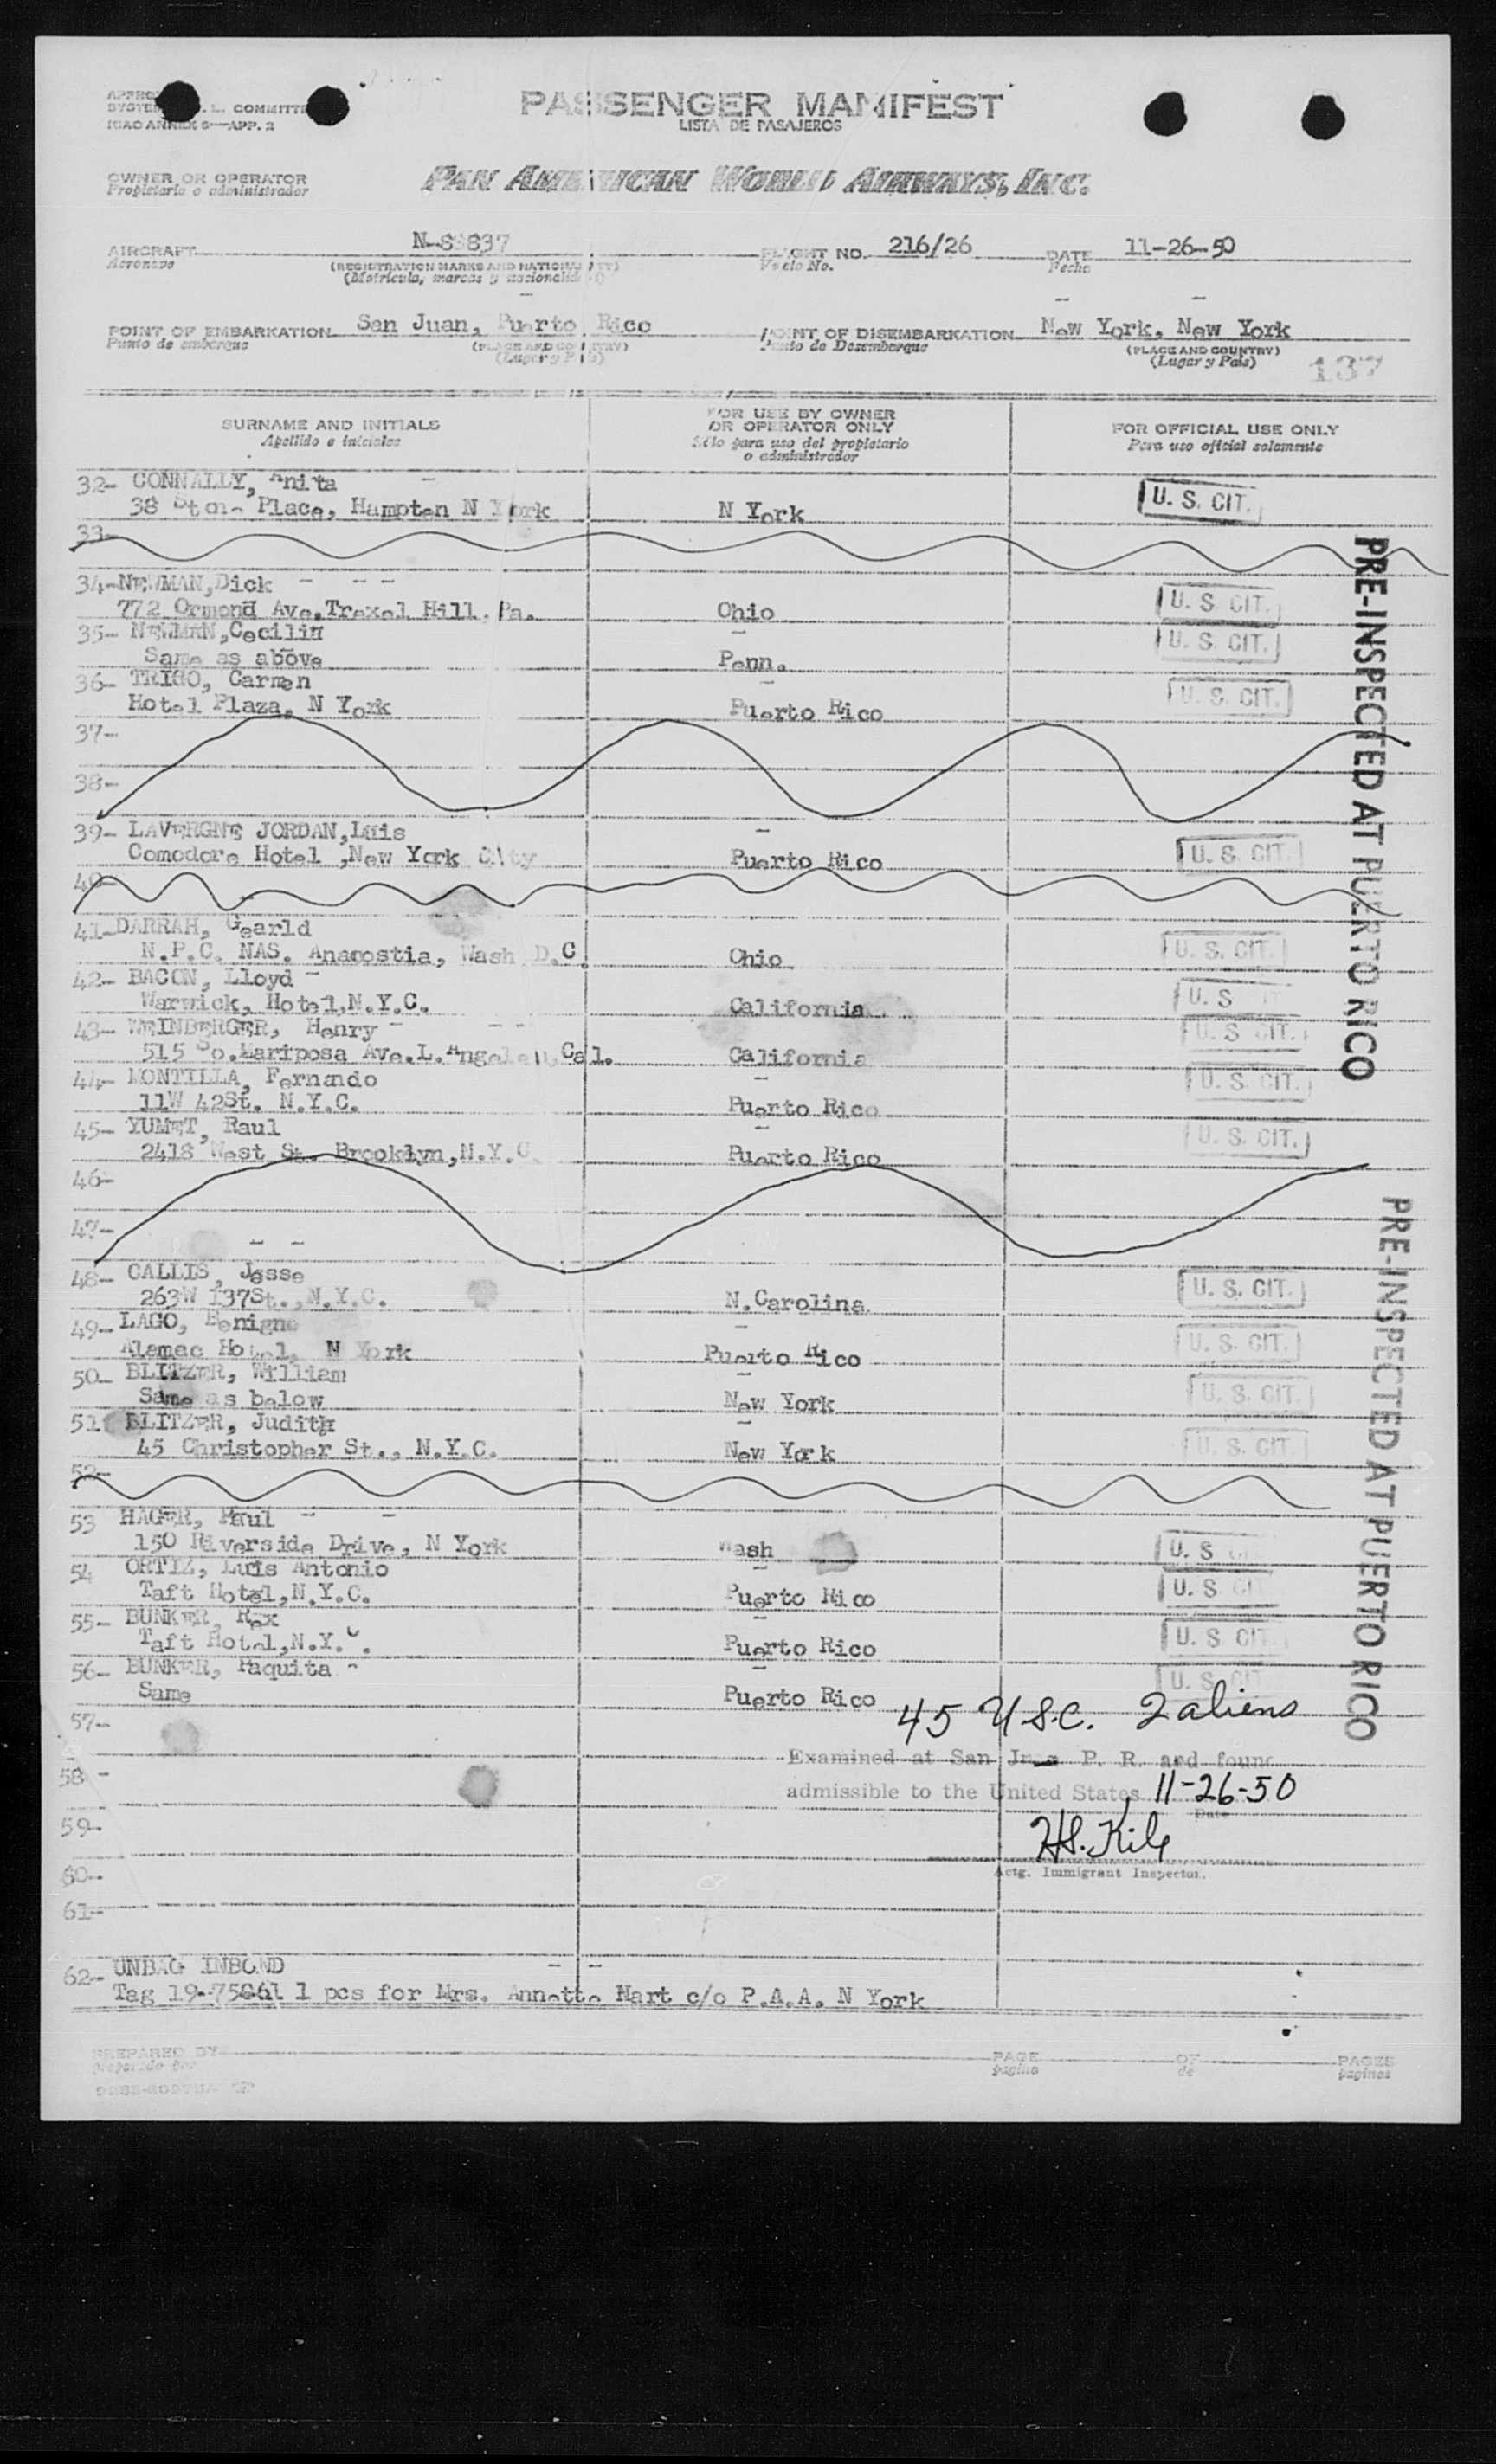 PASSENGER MANIFEST
LISTA DE PASAJEROS
ICAO ANNEX 9—APP. 2
OWNER OR OPERATOR
Propietario o administrador
PAN AMERICAN WORLD AIRWAYS, INC.
AIRCRAFT N-88837 FLIGHT NO. 216/26 DATE 11-26-50
Aeronave (REGISTRATION MARKS AND NATIONALITY) Vuelo No. Fecha
(Matrícula, marcas y nacionalidad)
POINT OF EMBARKATION San Juan, Puerto Rico POINT OF DISEMBARKATION New York, New York
Punto de embarque (PLACE AND COUNTRY) Punto de Desembarque (PLACE AND COUNTRY)
(Lugar y País) (Lugar y País) 137
SURNAME AND INITIALS FOR USE BY OWNER OR OPERATOR ONLY FOR OFFICIAL USE ONLY
Apellido e iniciales Sólo para uso del propietario o administrador Para uso oficial solamente
32- CONNALLY, Anita
38 Place, Hampton N York N York U. S. CIT.
33-
34-NEWMAN,Dick
772 Ormond Ave.Trexel Hill. Pa. Ohio U. S. CIT.
35- NEWMAN,Cecilin
Same as above Penn. U. S. CIT.
36- TRIGO, Carmen
Hotel Plaza, N York Puerto Rico U. S. CIT.
37-
38-
39- LAVERGNE JORDAN,Luis
Comodore Hotel ,New York City Puerto Rico U. S. CIT.
40-
41-DARRAH, Gearld
N.P.C. NAS. Anacostia, Wash D.C. Ohio U. S. CIT.
42- BACON, Lloyd
Warwick, Hotel,N.Y.C. California U. S
43- WEINBERGER, Henry
515 So.Mariposa Ave.L.Angeles, Cal. California U. S. CIT.
44- MONTILLA, Fernando
11W 42St. N.Y.C. Puerto Rico U. S. CIT.
45- YUMET, Raul
2418 West St. Brooklyn,N.Y.C. Puerto Rico U. S. CIT.
46-
47-
48- CALLIS, Jesse
263W 137St.,N.Y.C. N.Carolina U. S. CIT.
49- LAGO, Benigno
Alamac Hotel, N York Puerto Rico U. S. CIT.
50- BLITZER, William
Same as below New York U. S. CIT.
51 BLITZER, Judith
45 Christopher St., N.Y.C. New York U. S. CIT.
52-
53 HAGER, Paul
150 Riverside Drive, N York Wash U. S
54 ORTIZ, Luis Antonio
Taft Hotel,N.Y.C. Puerto Rico U. S
55- BUNKER, Rex
Taft Hotel,N.Y.C. Puerto Rico U. S CIT
56- BUNKER, Paquita
Same Puerto Rico U. S. CIT
57- 45 U.S.C. 2 aliens
Examined at San Juan P. R. and found
58 - admissible to the United States 11-26-50
Date
59- H.S. Kile
Actg. Immigrant Inspector.
60-
61-
62- UNBAG INBOND
Tag 19-- 1 pcs for Mrs. Annette Hart c/o P.A.A. N York
PREPARED BY PAGE OF PAGES
preparado por página de páginas
PRE-INSPECTED AT PUERTO RICO
PRE-INSPECTED AT PUERTO RICO